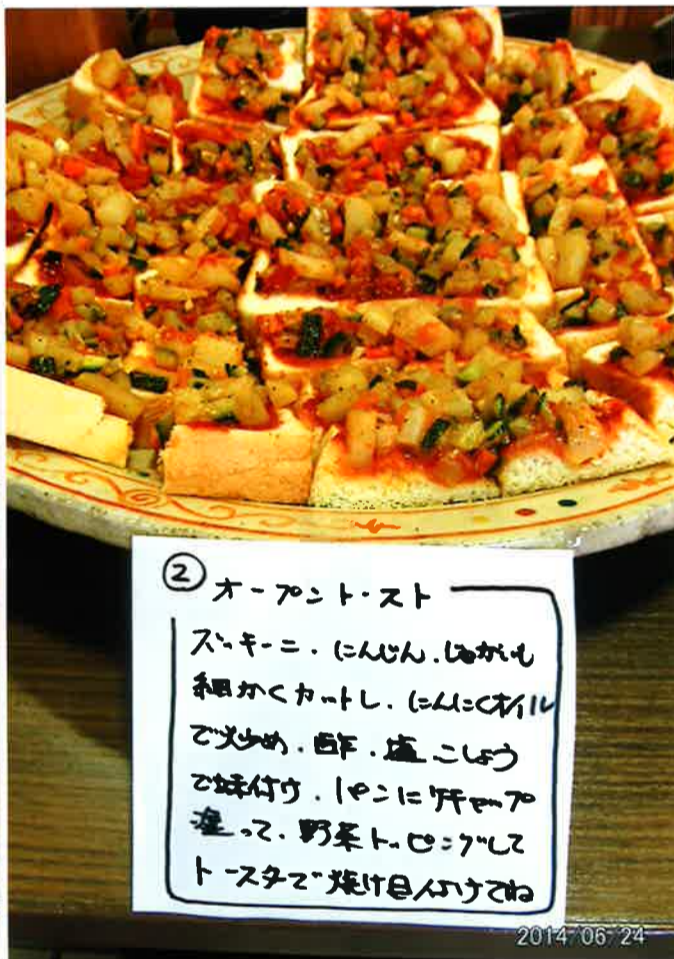 ② オープントースト
ズッキーニ.にんじん.じゃがいも
細かくカットし.にんにくオイル
で炒め.酢.塩.こしょう
で味付け.パンにケチャップ
塗って.野菜トッピングして
トースターで焼け目付けてね
2014/06/24